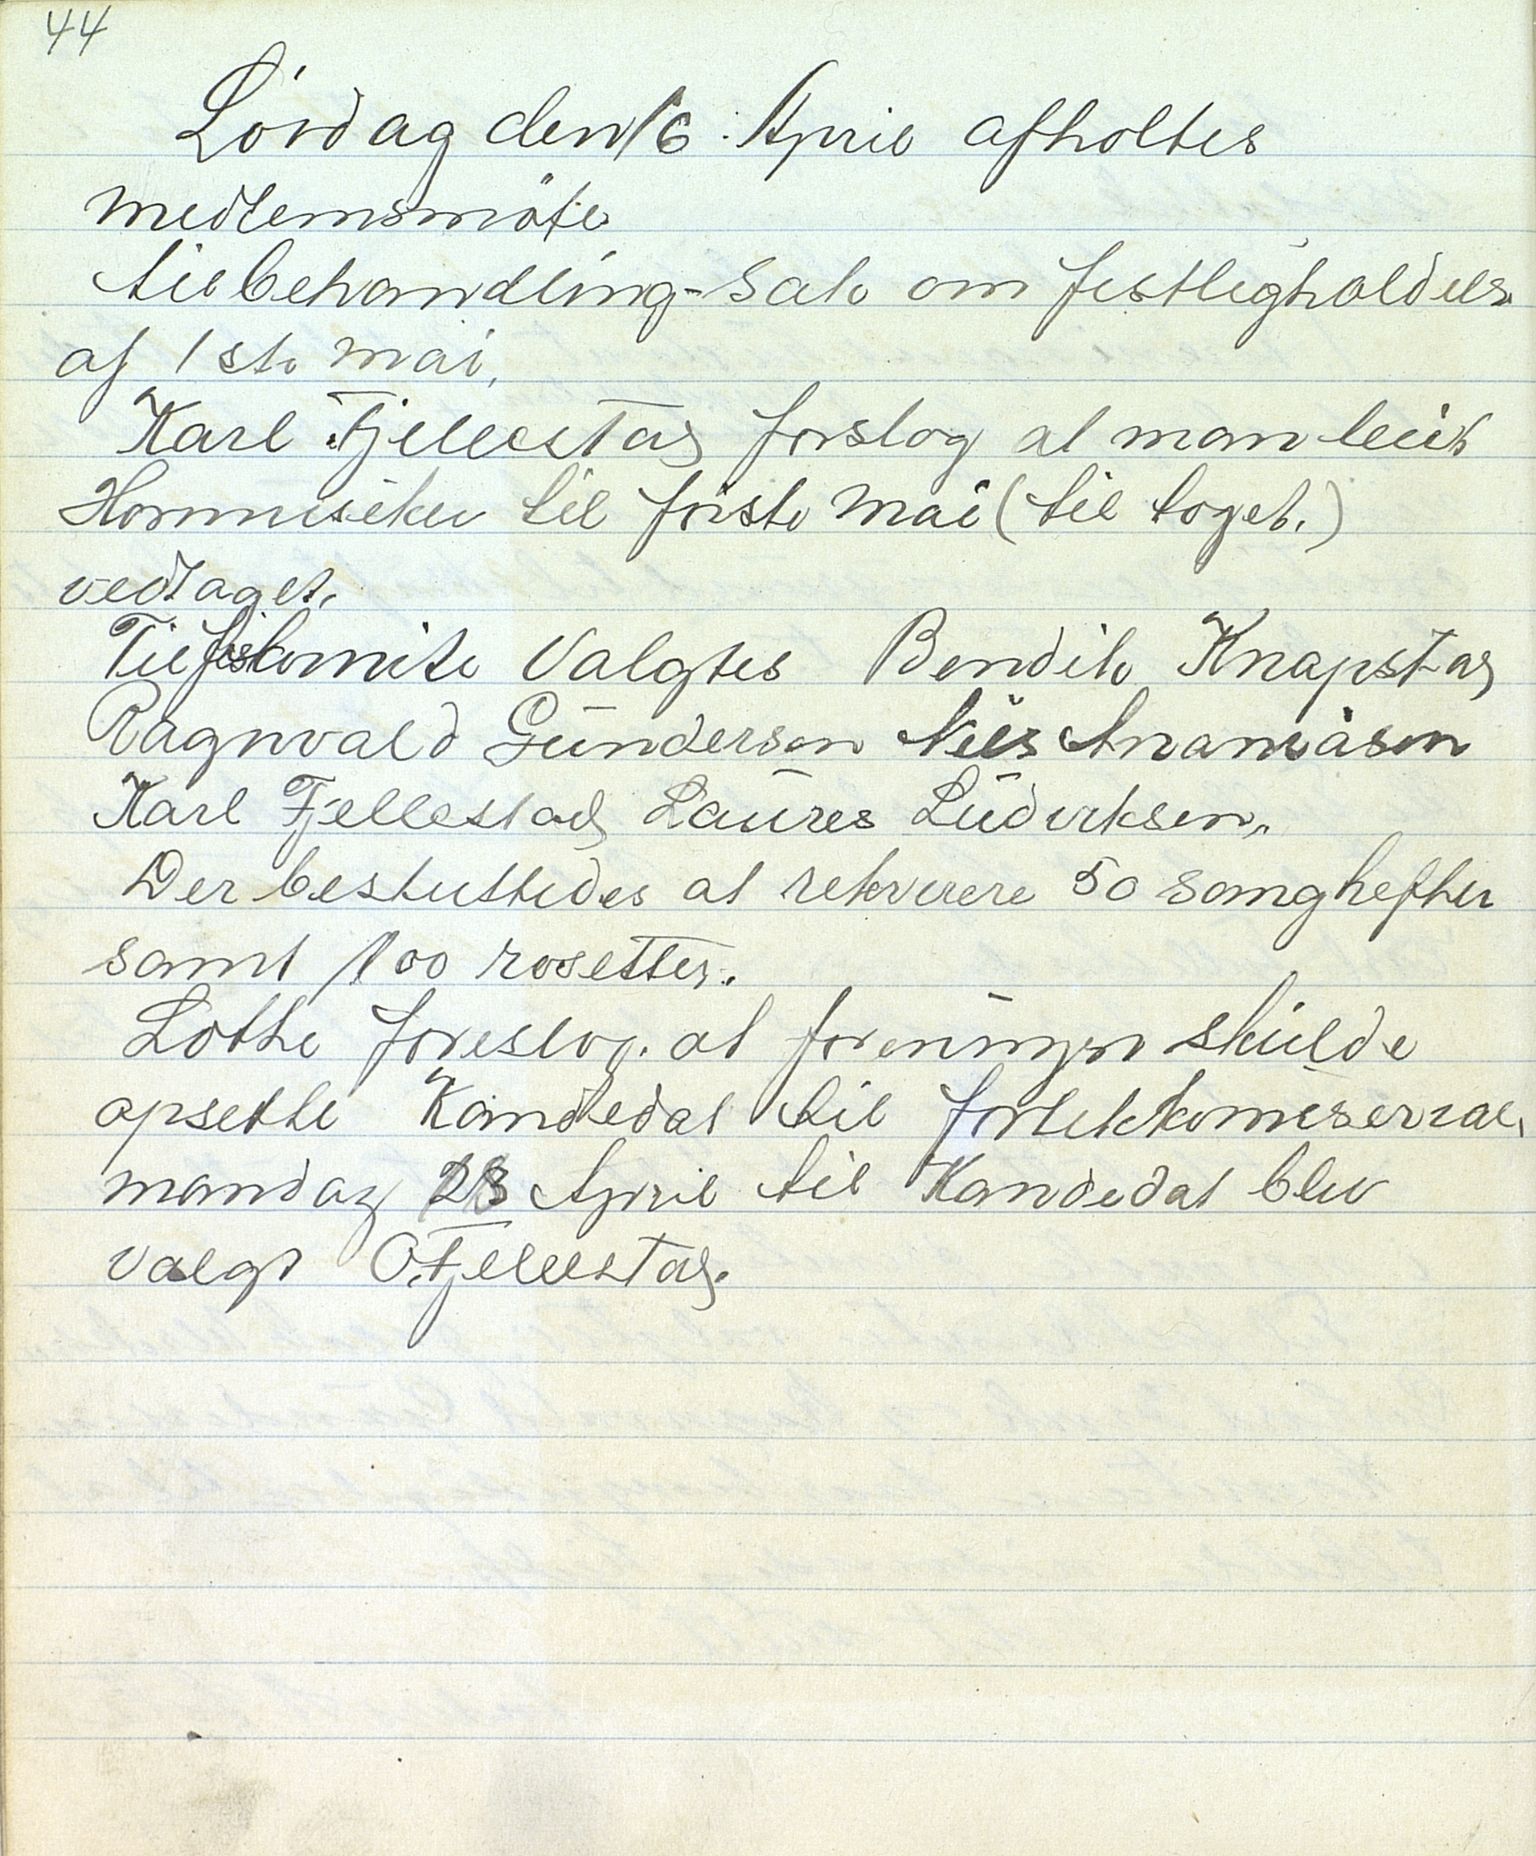 44
Lørdag den 16. April afholtes
medlemsmøte
til behandling - sak om festligholdels
af 1ste mai.
Karl Fjellestad forslog at man leiet
Hornmusiken til første mai (til toget.)
vedtaget.
Til feskomite Valgtes Bendik Knapstad
Ragnvald Gundersen Nils Ananiasen
Karl Fjellestad Laures Luderksen.
Der besluttedes at rekverere 50 sanghefter
samt 100 rosetter.
Lothe foreslog. at foreningen skulde
opsette Kandedat til
mandag April til Kandedat blev
valgt O. Fjellestad.